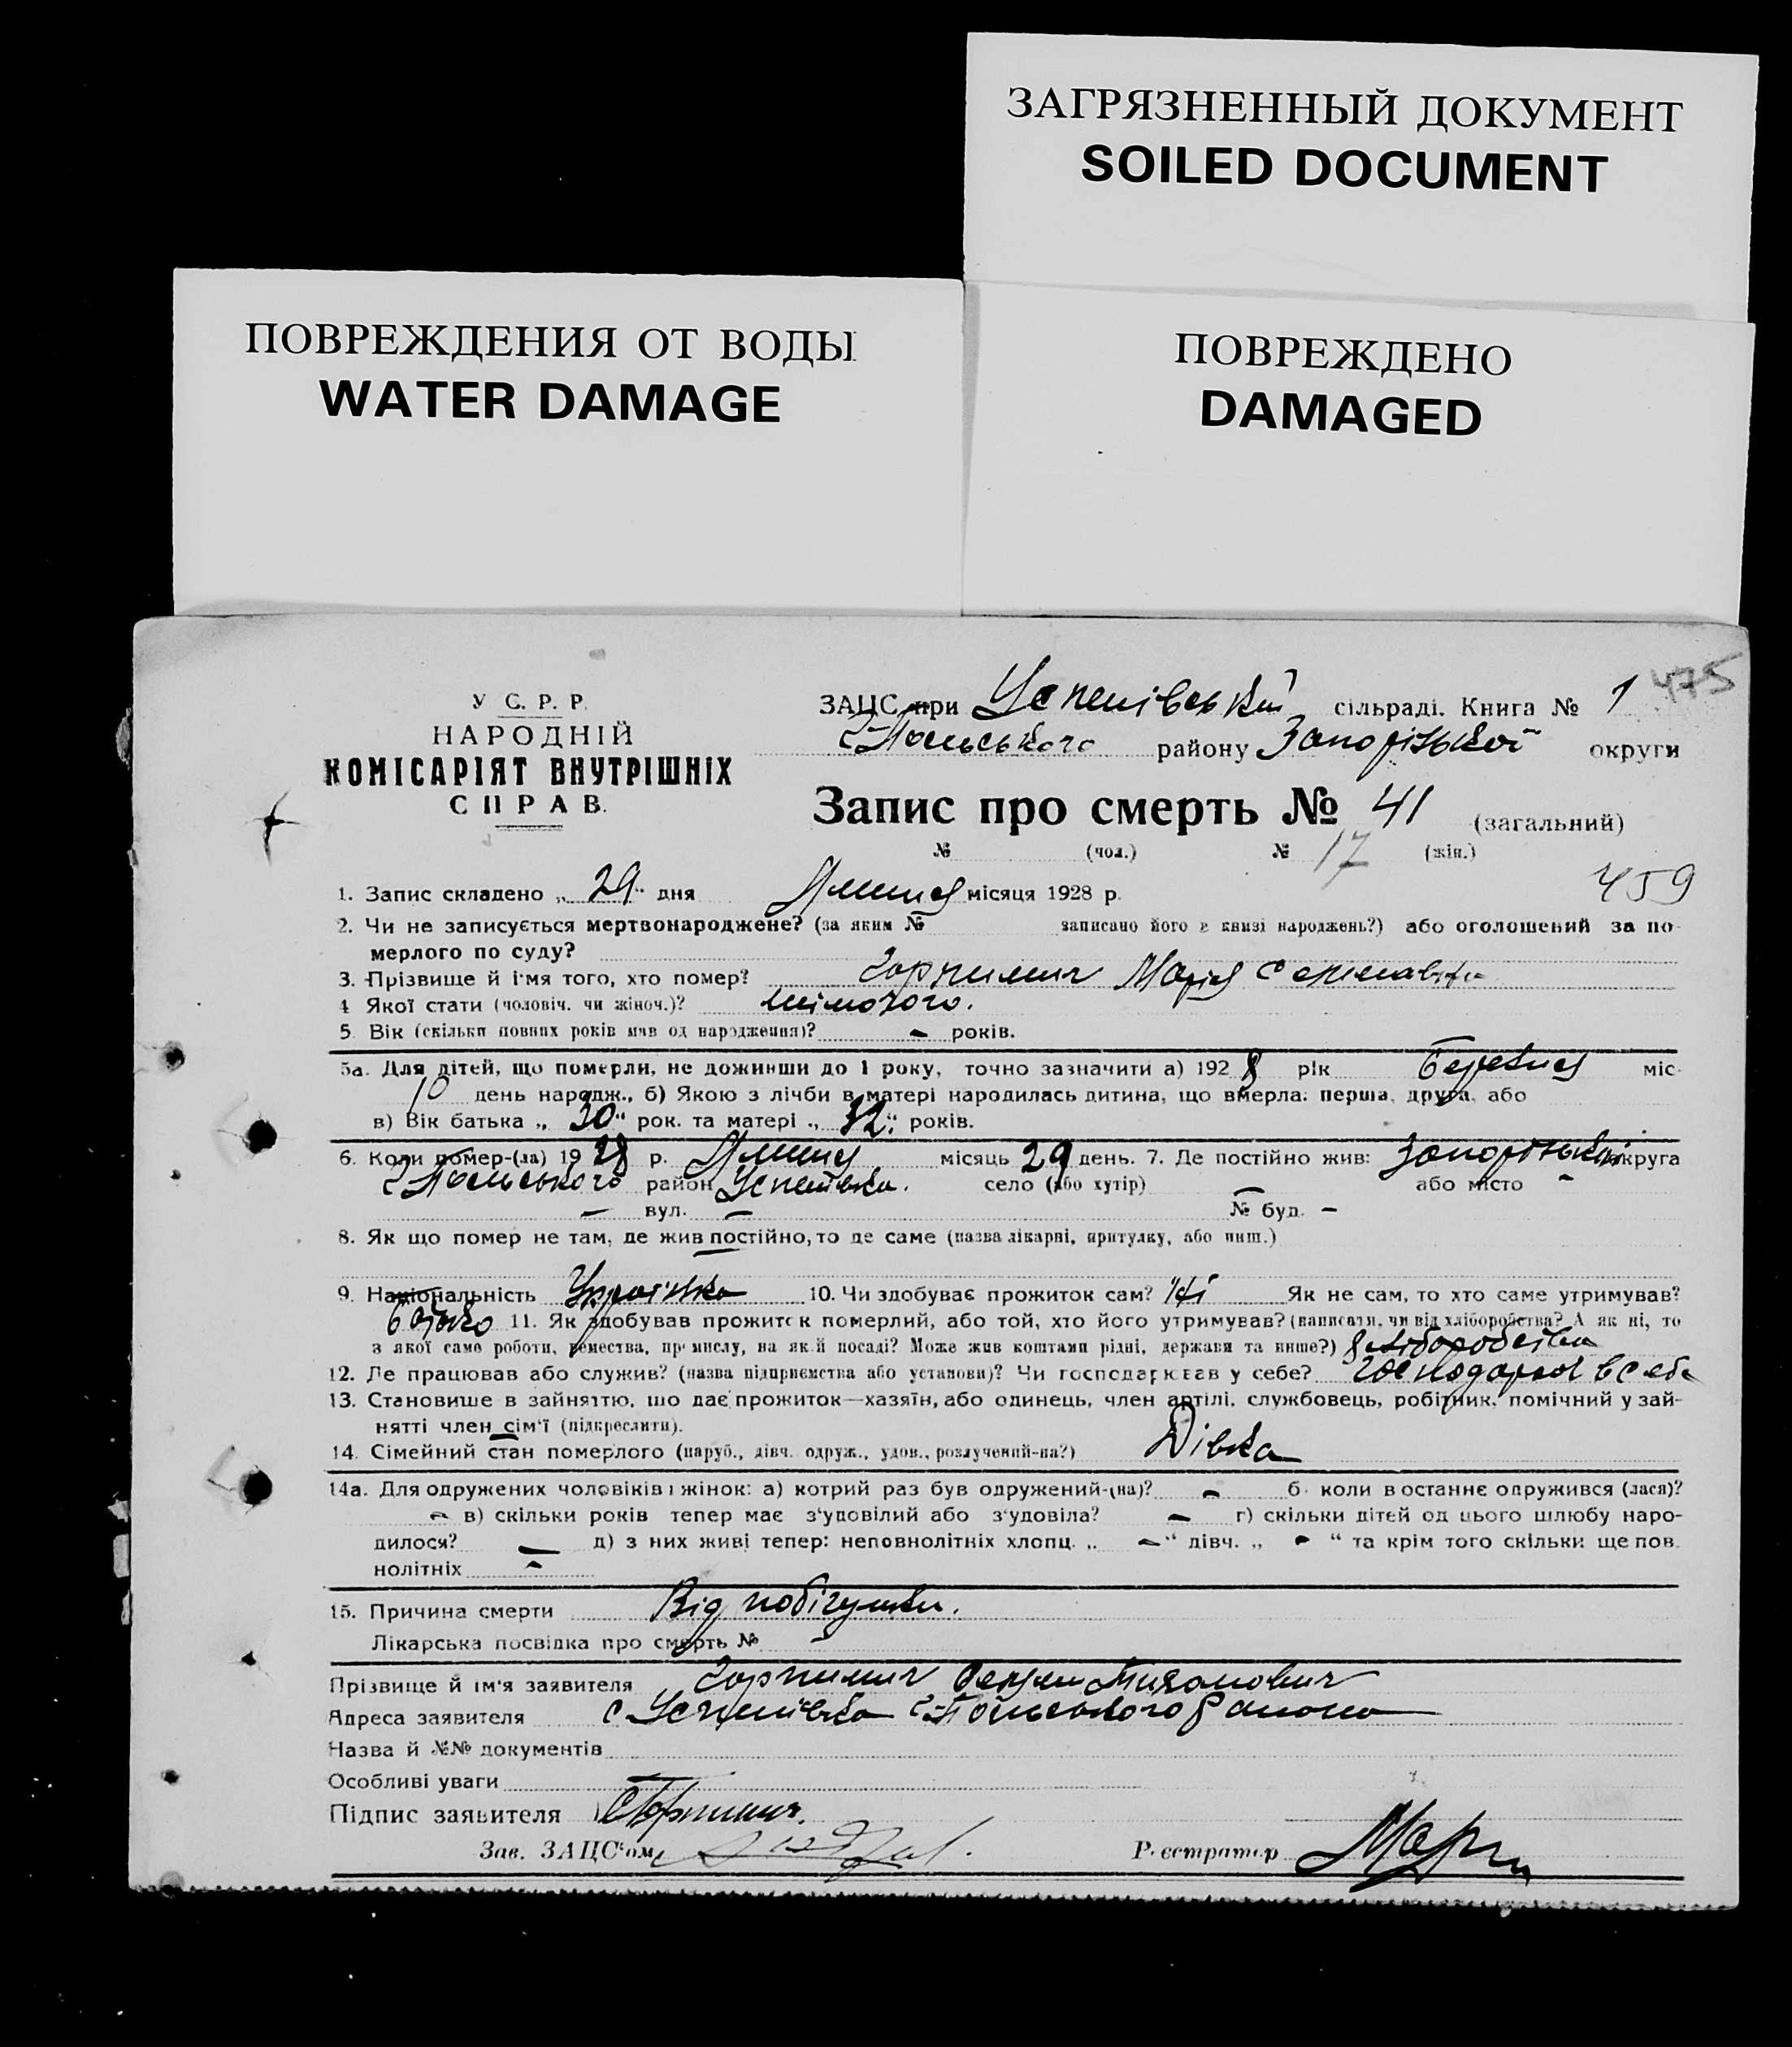 ЗАГРЯЗНЕННЫЙ ДОКУМЕНТ
SOILED DOCUMENT
ПОВРЕЖДЕНИЯ ОТ ВОДЫ
WATER DAMAGE
ПОВРЕЖДЕНО
DAMAGED
475
У С. Р. Р.
НАРОДНІЙ
КОМІСАРІЯТ ВНУТРІШНІХ
СПРАВ.
ЗАЦС при Успенівській сільраді. Книга № 1
району Запорізької округи
Запис про смерть № 41 (загальний)
№ (чол.) № 17 (жін.)
459
1. Запис складено „ 29 “ дня Липня місяця 1928 р.
2. Чи не записується мертвонароджене? (за яким № записано його в книзі народжень?) або оголошений за по-
мерлого по суду?
3. Прізвище й ім'я того, хто помер? Марія
4 Якої стати (чоловіч. чи жіноч.)? жіночого.
5. Вік (скільки повних років мав од народження)? – років.
5а. Для дітей, що померли, не доживши до 1 року, точно зазначити а) 1928 рік Березня міс.
10 день народж., б) Якою з лічби в матері народилась дитина, що вмерла: перша, друга, або
в) Вік батька „ 30 “ рок. та матері „ 32 “ років.
6. Коли помер-(ла) 1928 р. Липня місяць 29 день. 7. Де постійно жив: Запорізької округа
район Успенівка. село (або хутір) – або місто –
– вул. – № буд. –
8. Як що помер не там, де жив постійно, то де саме (назва лікарні, притулку, або инш.)
9. Національність Українка 10. Чи здобуває прожиток сам? Ні Як не сам, то хто саме утримував?
батько 11. Як здобував прожиток померлий, або той, хто його утримував? (написати, чи від хліборобства? А як ні, то
з якої само роботи, ремества, промислу, на якій посаді? Може жив коштами рідні, держави та инше?) хліборобства
12. Де працював або служив? (назва підприємства або установи)? Чи господарював у себе? Господарює в себе
13. Становище в зайняттю, що дає прожиток—хазяїн, або одинець, член артілі, службовець, робітник, помічний у зай-
нятті член сім'ї (підкреслити).
14. Сімейний стан померлого (паруб., дівч. одруж., удов., розлучений-на?) Дівка
14а. Для одружених чоловіків і жінок: а) котрий раз був одружений-(на)? – б. коли в останнє одружився (лася)?
– в) скільки років тепер має з'удовілий або з'удовіла? – г) скільки дітей од цього шлюбу наро-
дилося? – д) з них живі тепер: неповнолітніх хлопц. „ – “ дівч. „ – “ та крім того скільки ще пов.
нолітніх –
15. Причина смерти Від побігушки.
Лікарська посвідка про смерть № –
Прізвище й ім'я заявителя
Адреса заявителя с Успенівка
Назва й №№ документів
Особливі уваги
Підпис заявителя
Зав. ЗАЦС'ом Реєстратор